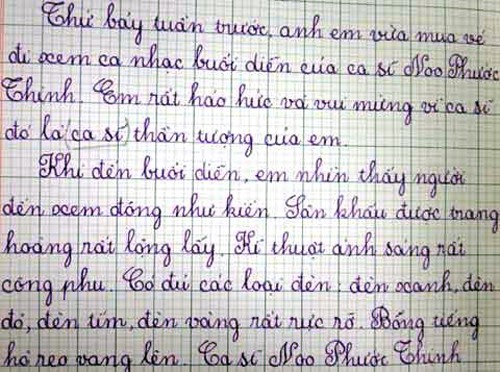 Thứ bảy tuần trước, anh em vừa mua vé
đi xem ca nhạc buổi diễn của ca sĩ Noo Phước
Thịnh. Em rất háo hức và vui mừng vì ca sĩ
đó là (ca sĩ) thần tượng của em.
Khi đến buổi diễn, em nhìn thấy người
đến xem đông như kiến. Sân khấu được trang
hoàng rất lộng lẫy. Kĩ thuật ánh sáng rất
công phu. Có đủ các loại đèn: đèn xanh, đèn
đỏ, đèn tím, đèn vàng rất rực rỡ. Bỗng tiếng
hò reo vang lên. Ca sĩ Noo Phước Thịnh